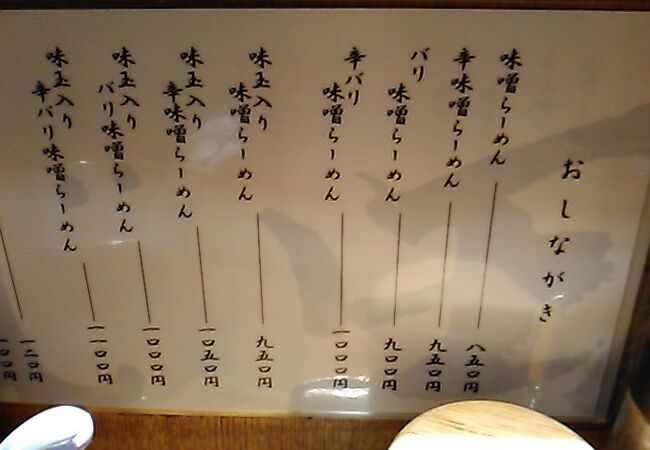 おしながき
味噌らーめん 八五〇円
辛味噌らーめん 九五〇円
バリ味噌らーめん 九〇〇円
辛バリ味噌らーめん 一〇〇〇円
味玉入り味噌らーめん 九五〇円
味玉入り辛味噌らーめん 一〇五〇円
味玉入りバリ味噌らーめん 一〇〇〇円
味玉入り辛バリ味噌らーめん 一一〇〇円
一二〇円
一〇〇円